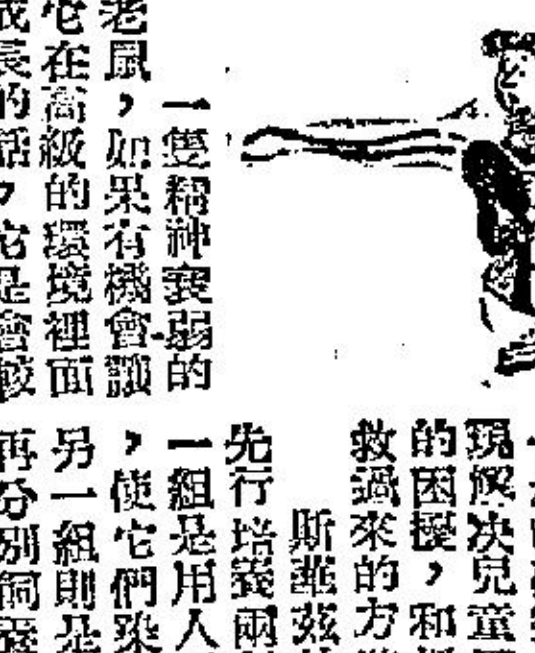 一隻精神衰弱的
老鼠，如果有機會讓
它在高級的環境裡面
成長的話，它是會較
現解決兒童
的困擾，和
救過來的方
斯華茲
先行培養兩
一組是用人
，使它們染
另一組則是
再分別飼養